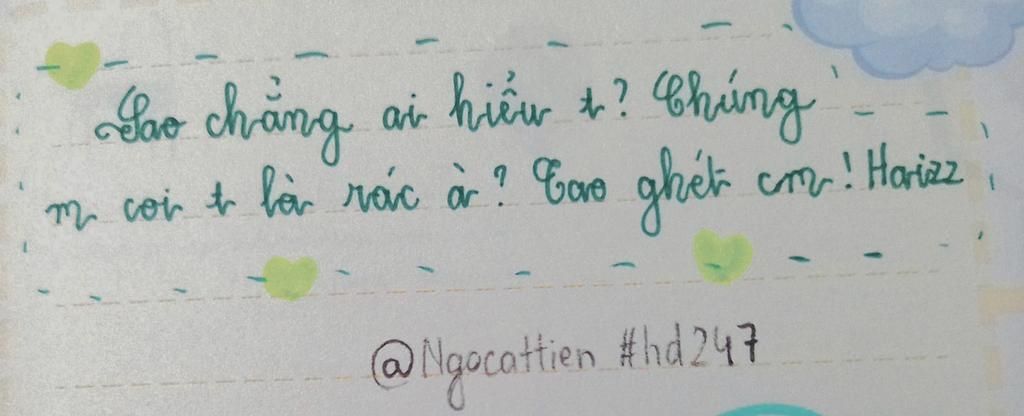 Sao chẳng ai hiểu t? Chúng
m coi t là rác à? Tao ghét cm! Harizz
@Ngocattien #hd247